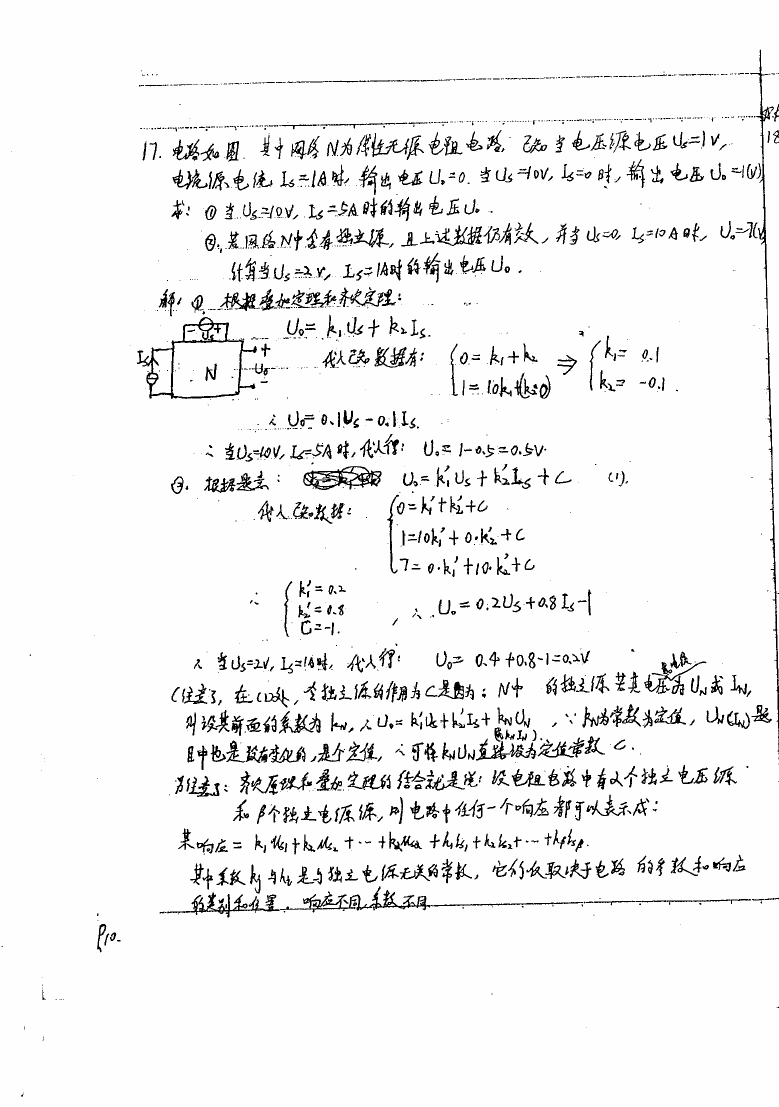 17. 电路如图 其中网络N为线性无源电阻电路, 已知当电压源电压Us=1V,
电流源电流 Is=1A时, 输出电压U₀=0. 当Us=10V, Is=0时, 输出电压U₀=1(V)
18
求: ① 当Us=10V, Is=5A时的输出电压U₀.
②. 若网络N中含有独立源, 且上述数据仍有效, 并当Us=0, Is=10A时, U₀=7(V)
计算当Us=2V, Is=1A时的输出电压U₀.
解: ①. 根据叠加定理和齐次定理:
U₀= k₁Us + k₂Is.
代入已知数据有: {0=k₁+k₂ ⇒ {k₁= 0.1
1=10k₁+(k₂·0) k₂= -0.1.
- Us +
Is N + U₀ -
∴ U₀=0.1Us-0.1Is.
∴ 当Us=10V, Is=5A时, 代入得: U₀=1-0.5=0.5V.
②. 根据题意: U₀=k₁'Us+k₂'Is+C (1).
代入已知数据: {0=k₁'+k₂'+C
1=10k₁'+0·k₂'+C
7=0·k₁'+10·k₂'+C
∴ {k₁'=0.2
k₂'=0.8
C=-1. , ∴ U₀=0.2Us+0.8Is-1
∴ 当Us=2V, Is=1A时, 代入得: U₀= 0.4+0.8-1=0.2V
(注意了, 在(1)处, 令独立源的作用为C是因为: N中 的独立源若其电压为U_N或I_N,
则设其前面的系数为k_N, ∴U₀=k₁'Us+k₂'Is+k_N U_N , ∵ k_N为常数为定值, U_N(I_N)题
(或k_N I_N).
目中也是没有变化的, 是个定值, ∴可将k_N U_N直接设为定值常数C.
另注意了: 齐次原理和叠加定理的结合就是说: 设电阻电路中有α个独立电压源
和β个独立电流源, 则电路中任何一个响应都可以表示成:
某响应= k₁us₁+k₂us₂+…+kαusα+h₁is₁+h₂is₂+…+hβisβ.
其中系数kj与hi是与独立电源无关的常数, 它们仅取决于电路的参数和响应
的类别和位置. 响应不同,系数不同.
P10.